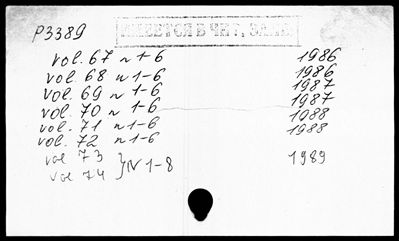 P3389
ИМЕЕТСЯ В ЧИТ. ЗАЛЕ
vol. 67 n 1-6 1986
vol. 68 n 1-6 1986
vol. 69 n 1-6 1987
vol. 70 n 1-6 1987
vol. 71 n 1-6 1988
vol. 72 n 1-6 1988
vol 73 } N 1-8 1989
vol 74